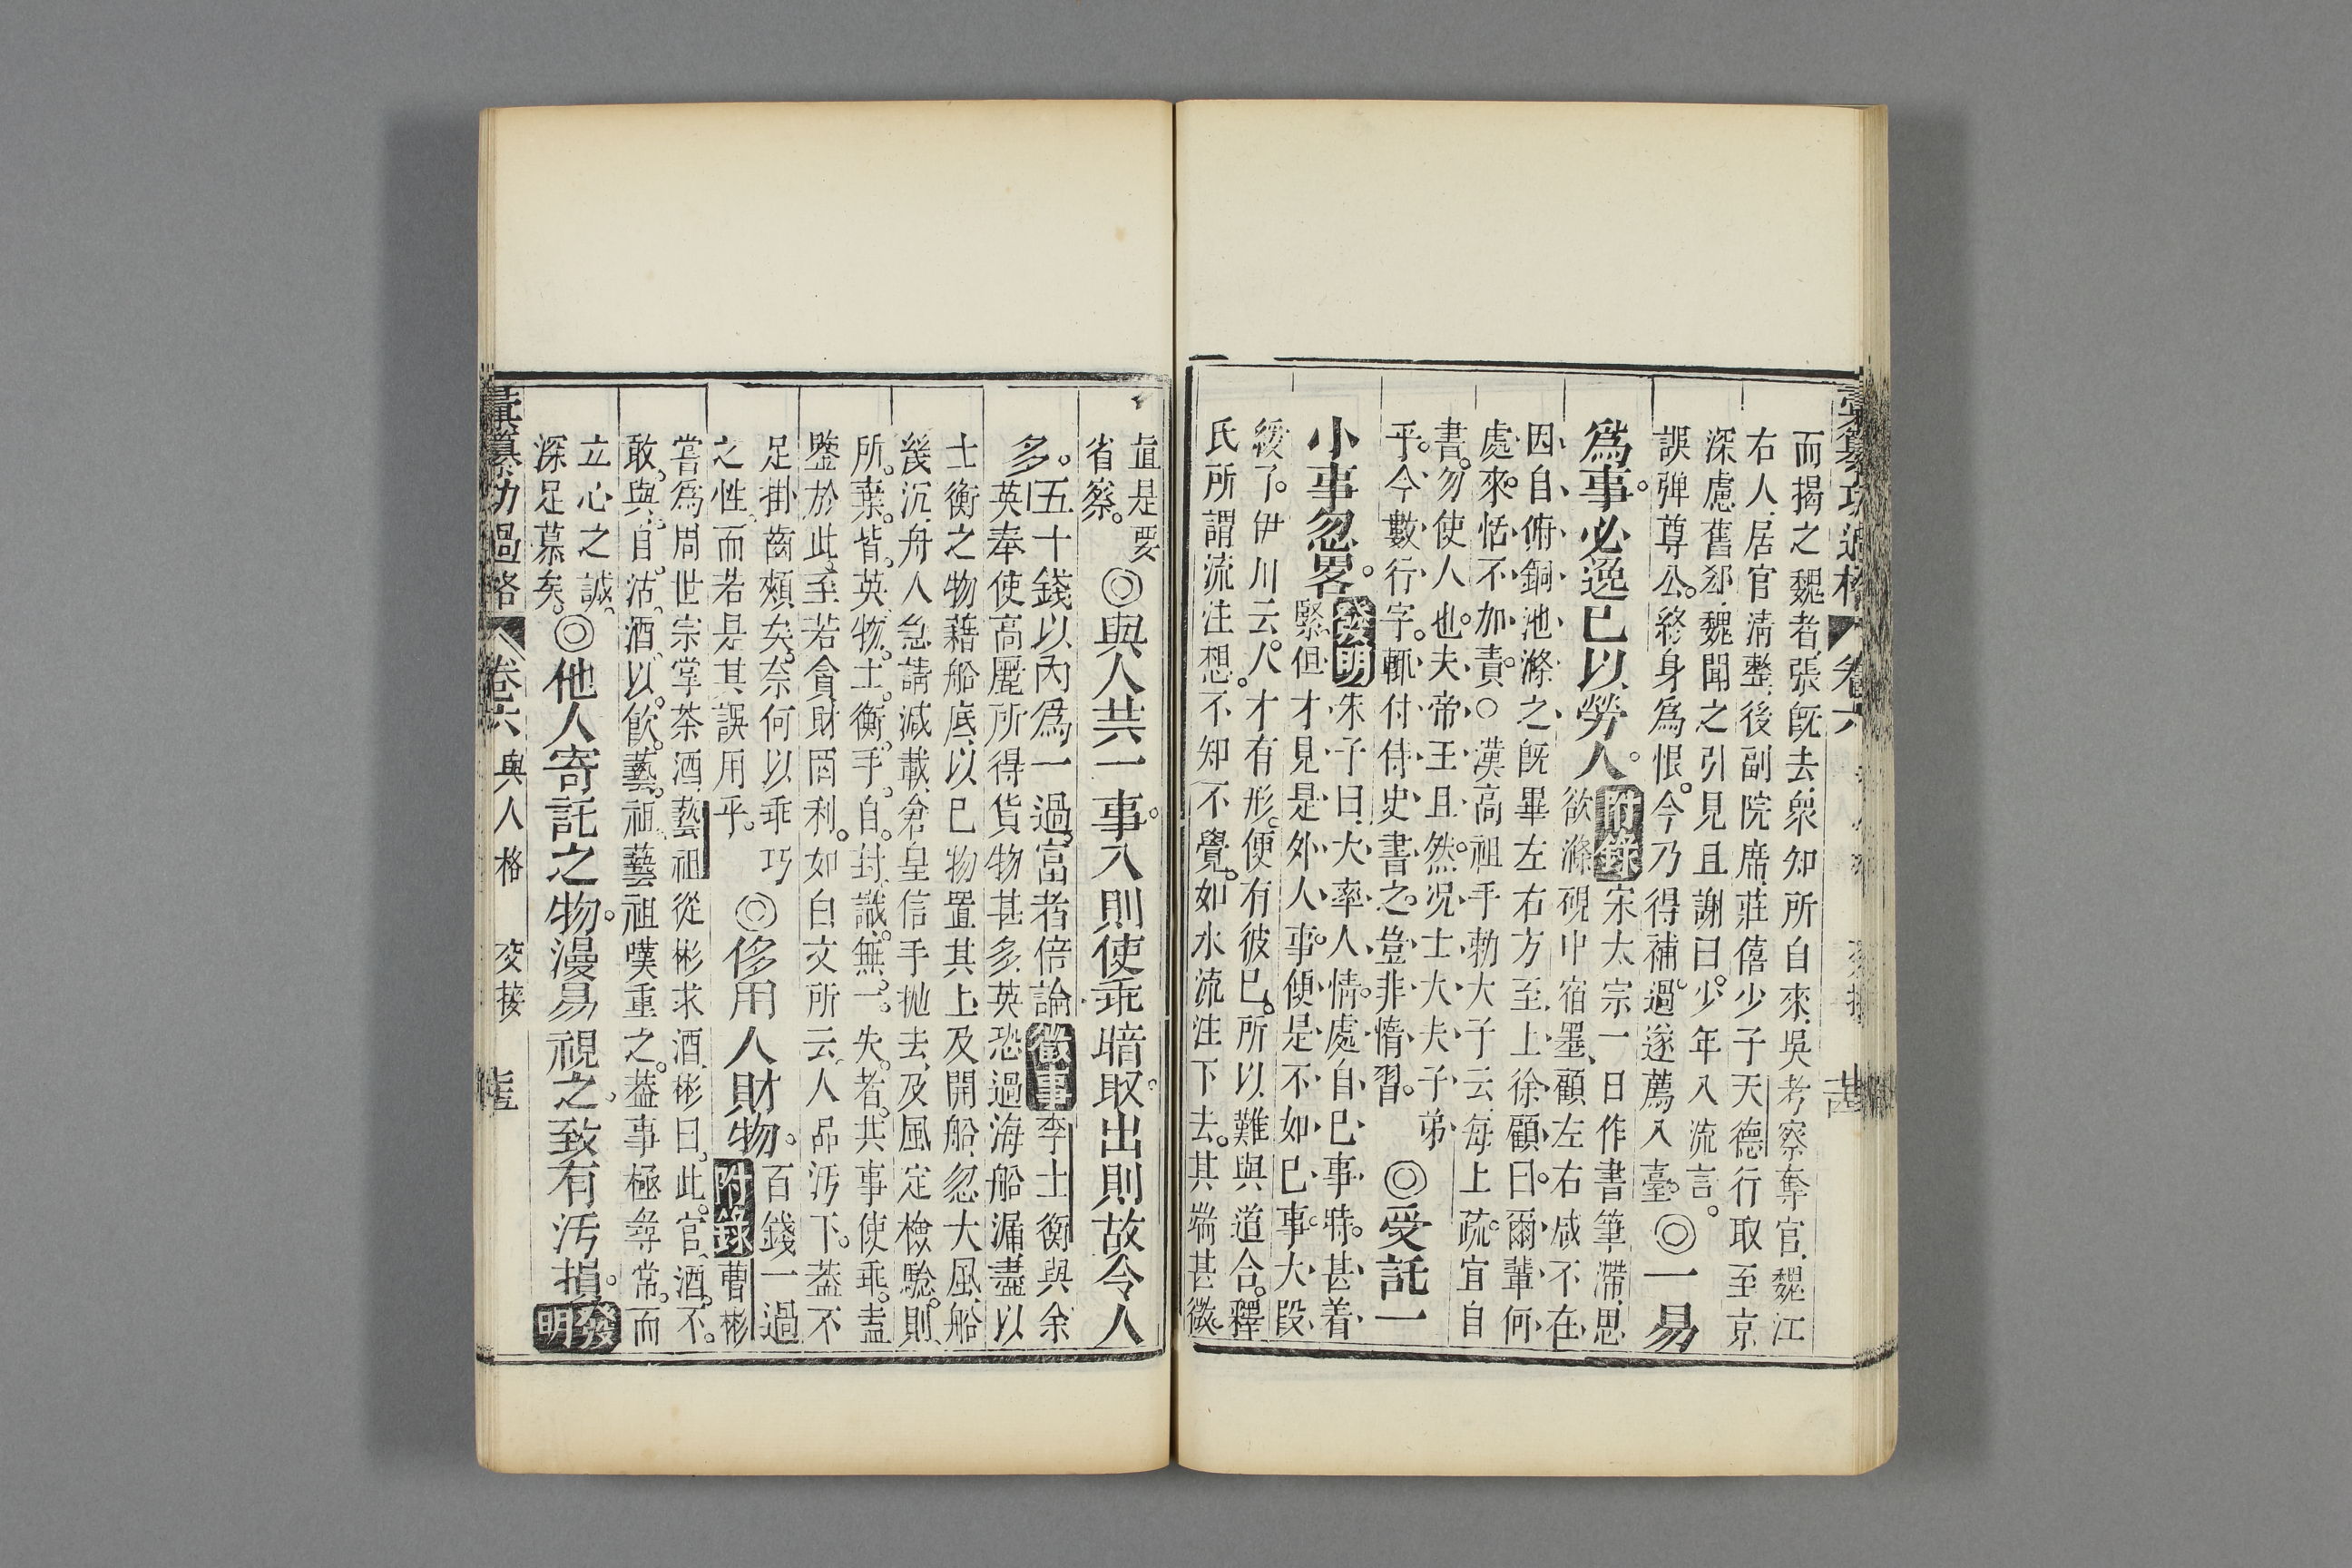 彙纂功過格 卷六
而揭之魏者張旣去衆知所自來吳考察奪官魏江
右人居官淸整後副院席莊僖少子天德行取至京
深慮舊郄魏聞之引見且謝曰少年入流言
誤彈尊公終身爲恨今乃得補過遂薦入臺◎一易
爲事必逸已以勞人附錄宋太宗一日作書筆滯思
欲滌硯中宿墨顧左右咸不在
因自俯銅池滌之旣畢左右方至上徐顧曰爾輩何
處來恬不加責○漢高祖手勅大子云每上疏宜自
書勿使人也夫帝王且然况士大夫子弟
乎今數行字輒付侍史書之豈非惰習◎受託一
小事忽畧發明朱子曰大率人情處自已事時甚着
緊但才見是外人事便是不如已事大段
緩了伊川云人才有形便有彼已所以難與道合釋
氏所謂流注想不知不覺如水流注下去其端甚微
眞是要
省察◎與人共一事入則使乖暗取出則故令人
多五十錢以內爲一過富者倍論徵事李士衡與余
英奉使高麗所得貨物甚多英恐過海船漏盡以
士衡之物藉船底以已物置其上及開船忽大風船
幾沉舟人急請減載倉皇信手抛去及風定檢驗則
所棄皆英物士衡手自封識無一失者共事使乖盍
鑒於此至若貪財罔利如白文所云人品汚下葢不
足掛齒頰矣奈何以乖巧
之性而若是其誤用乎◎侈用人財物百錢一過附錄曹彬
嘗爲周世宗掌茶酒藝祖從彬求酒彬曰此官酒不
敢與自沽酒以飮藝祖藝祖嘆重之葢事極尋常而
立心之誠
深足慕矣◎他人寄託之物漫易視之致有汚損發明
彙纂功過格 卷六 與人格 交接